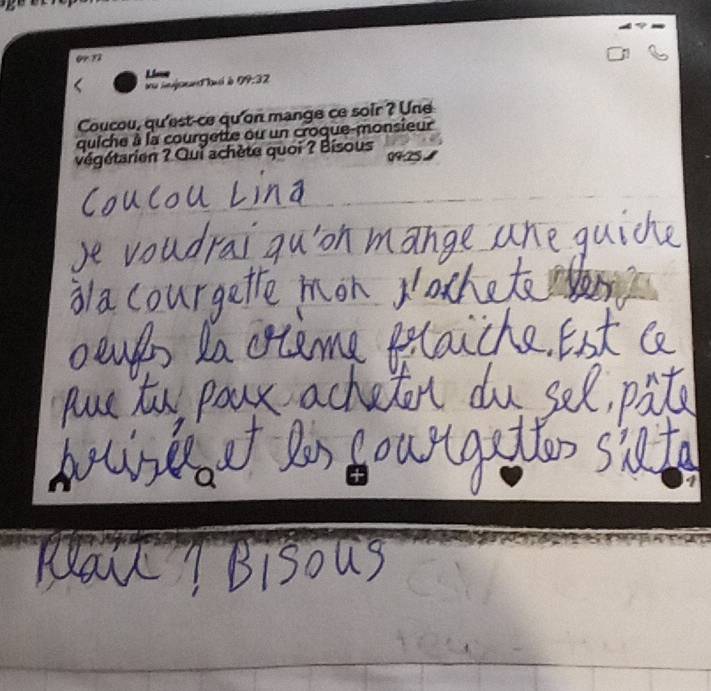 Lina
vu aujourd'hui à 09:32
Coucou, qu'est-ce qu'on mange ce soir ? Une
quiche à la courgette ou un croque-monsieur
végétarien ? Qui achète quoi ? Bisous
09:25
Coucou Lina
Je voudrai qu'on mange une quiche
à la courgette mon j'achete les
oeufs la crème fraiche. Est ce
que tu poux acheter du sel, pâte
brisée et les courgettes s'il te
plait ? Bisous